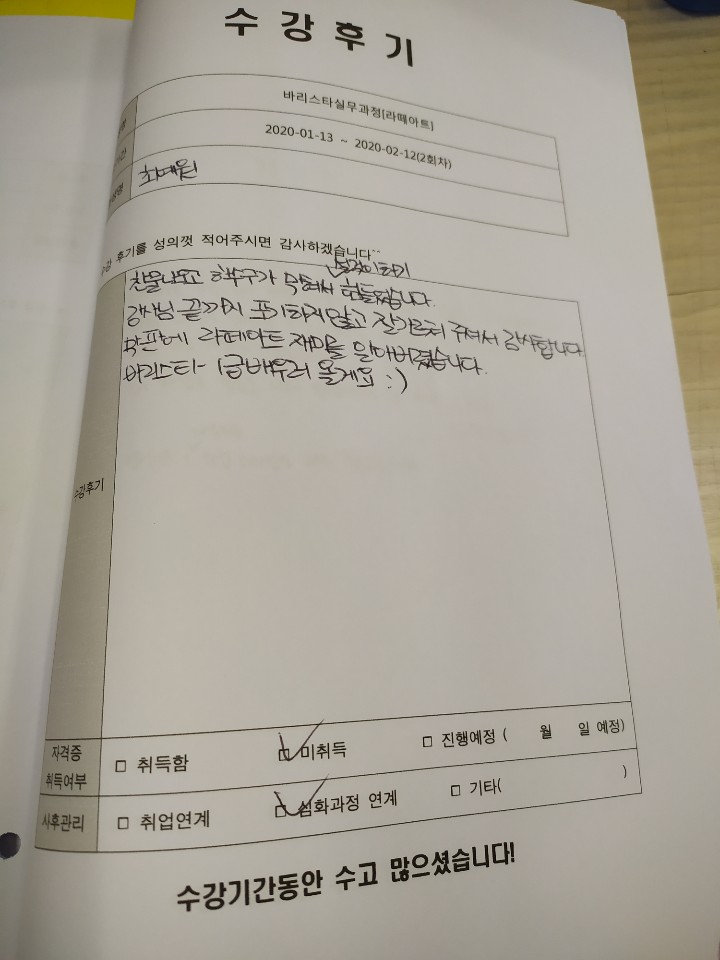 수강후기
바리스타실무과정[라떼아트]
2020-01-13 ~ 2020-02-12(2회차)
최예원
수강 후기를 성의껏 적어주시면 감사하겠습니다^^
설거지하기
찬물나오고 하수구가 막혀서 힘들었습니다.
강사님 끝까지 포기하지않고 잘가르쳐 주셔서 감사합니다
막판에 라떼아트 재미를 알아버렸습니다.
바리스타 1급배우러 올게요 :)
수강후기
자격증 취득여부 □ 취득함 □ 미취득 □ 진행예정 ( 월 일 예정)
사후관리 □ 취업연계 □ 심화과정 연계 □ 기타( )
수강기간동안 수고 많으셨습니다!